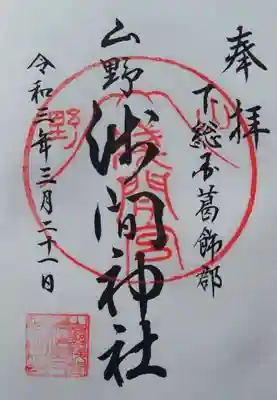 奉拝
下総国葛飾郡
山野
浅間神社
令和三年三月二十一日
山野
浅間宮